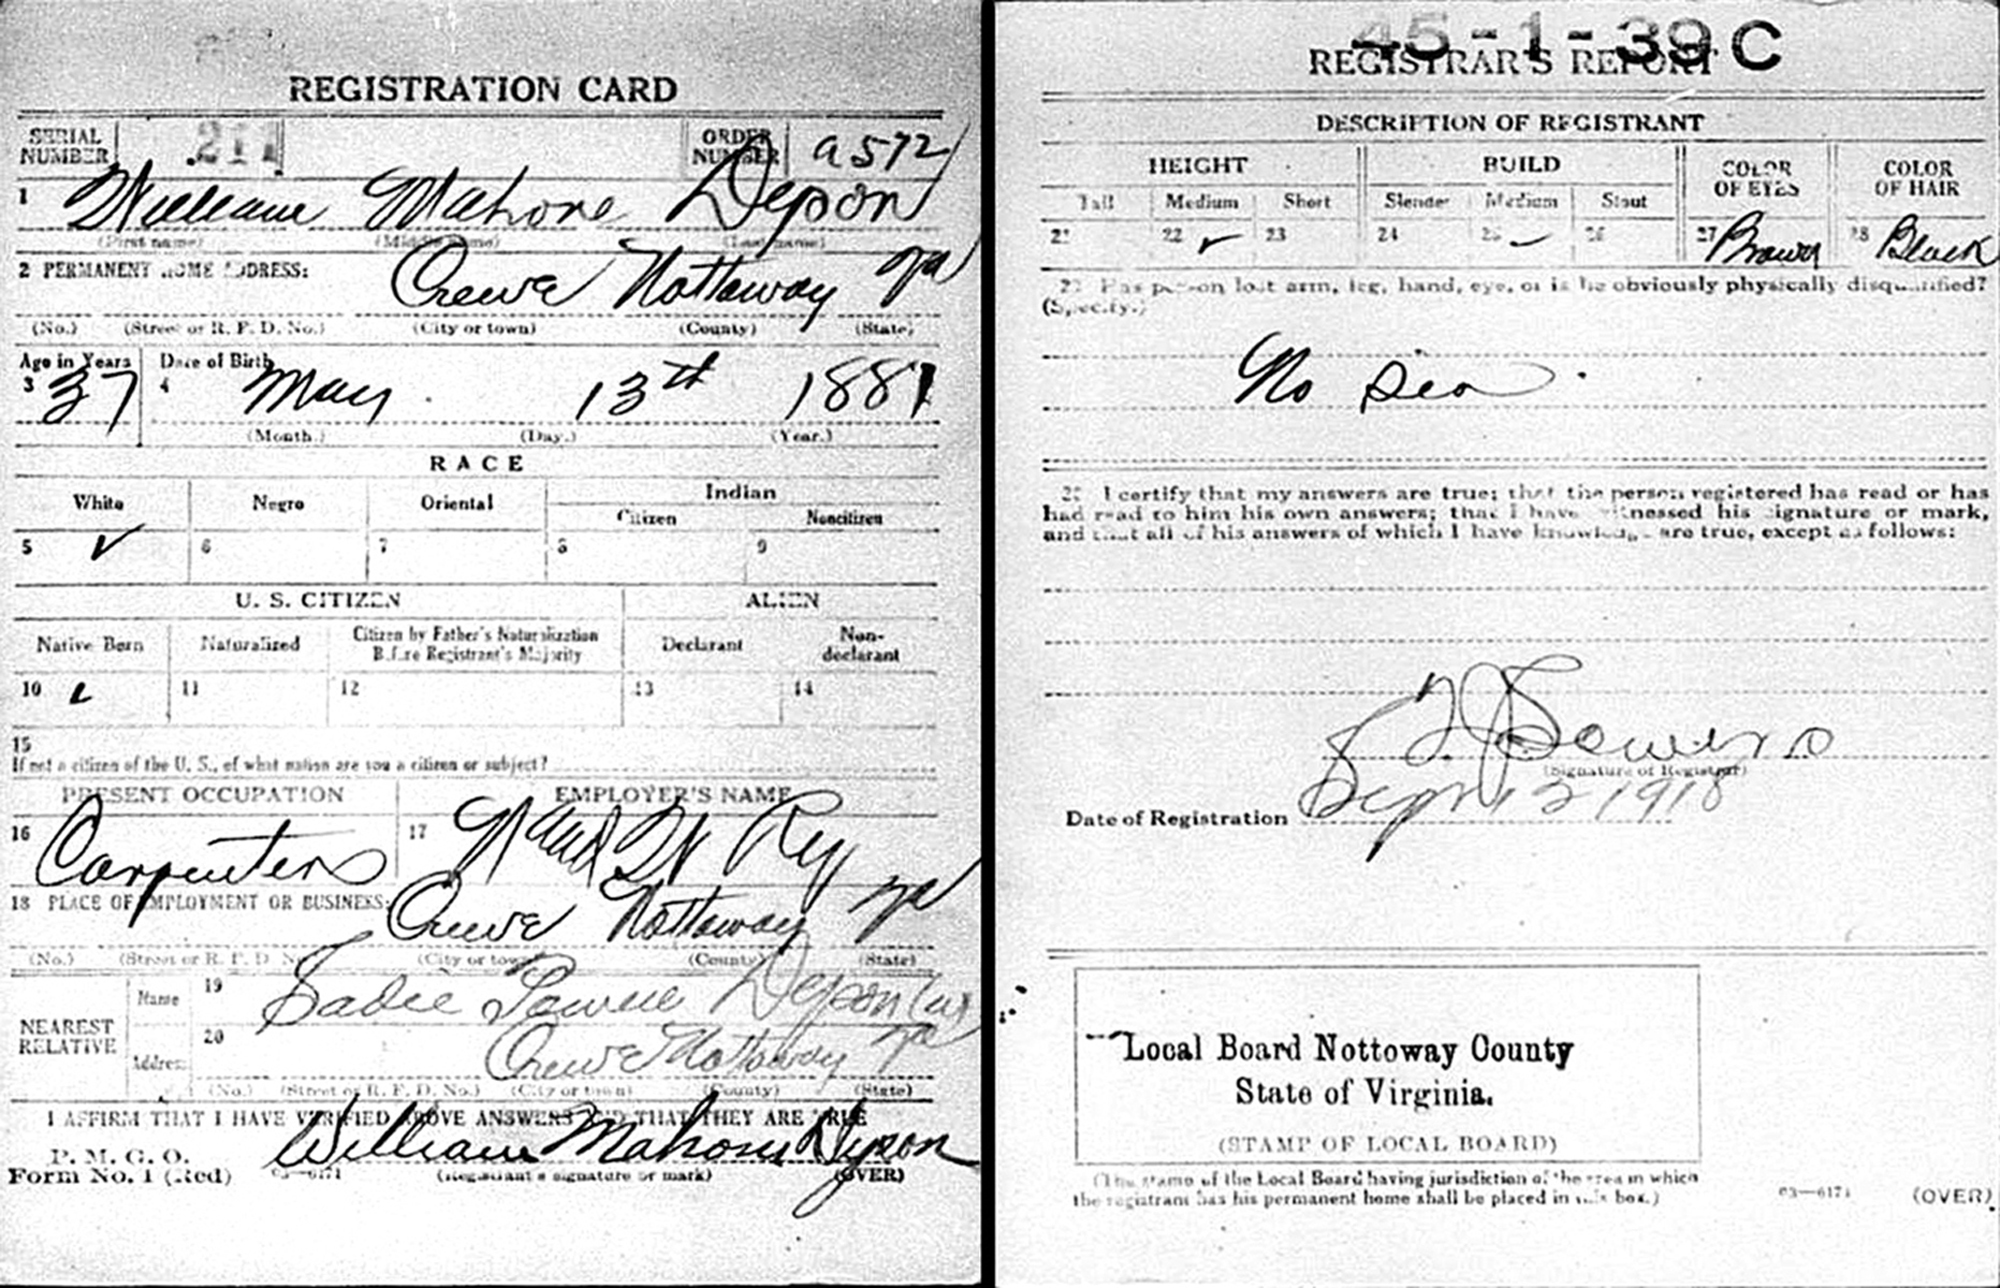 REGISTRATION CARD
SERIAL NUMBER 211 ORDER NUMBER a572
1 William Mahone Dyson
(First name) (Middle name) (Last name)
2 PERMANENT HOME ADDRESS: Crewe Nottoway Va
(No.) (Street or R. F. D. No.) (City or town) (County) (State)
Age in Years Date of Birth
3 37 4 May 13th 1881
(Month.) (Day.) (Year.)
RACE
White Negro Oriental Indian
Citizen Noncitizen
5 ✓ 6 7 8 9
U. S. CITIZEN ALIEN
Native Born Naturalized Citizen by Father's Naturalization Before Registrant's Majority Declarant Non-declarant
10 ✓ 11 12 13 14
15
If not a citizen of the U. S., of what nation are you a citizen or subject?
PRESENT OCCUPATION EMPLOYER'S NAME
16 Carpenter 17 Ry
18 PLACE OF EMPLOYMENT OR BUSINESS: Crewe Nottoway Va
(No.) (Street or R. F. D. No.) (City or town) (County) (State)
NEAREST RELATIVE
Name 19 Sadie Dyson
Address 20 Crewe Nottoway Va
(No.) (Street or R. F. D. No.) (City or town) (County) (State)
I AFFIRM THAT I HAVE VERIFIED ABOVE ANSWERS AND THAT THEY ARE TRUE
P. M. G. O.
Form No. 1 (Red) 03—6171 William Mahone Dyson
(Registrant's signature or mark) (OVER)
45-1-39 C
REGISTRAR'S REPORT
DESCRIPTION OF REGISTRANT
HEIGHT BUILD COLOR OF EYES COLOR OF HAIR
Tall Medium Short Slender Medium Stout
21 22 ✓ 23 24 25 26 27 Brown 28 Black
29 Has person lost arm, leg, hand, eye, or is he obviously physically disqualified?
(Specify.)
No
30 I certify that my answers are true; that the person registered has read or has
had read to him his own answers; that I have witnessed his signature or mark,
and that all of his answers of which I have knowledge are true, except as follows:
(Signature of Registrar)
Date of Registration Sept 12 1918
Local Board Nottoway County
State of Virginia.
(STAMP OF LOCAL BOARD)
(The stamp of the Local Board having jurisdiction of the area in which
the registrant has his permanent home shall be placed in this box.)
03—6171 (OVER)